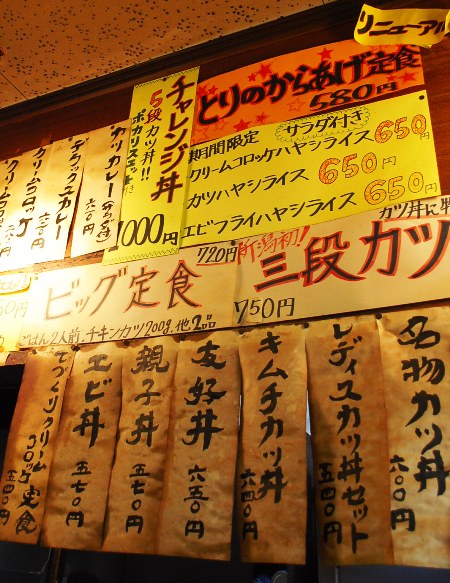 リニューアル
とりのからあげ定食
580円
チャレンジ丼
5段カツ丼!!
ポカリスエット付き
1000円
サラダ付き
期間限定
クリームコロッケハヤシライス 650円
カツハヤシライス 650円
エビフライハヤシライス 650円
カツカレー
デラックスカレー
クリームコロッケ
ビッグ定食
720円
ごはん2人前、チキンカツ200g、他2品
カツ丼に特
新潟初!
三段カツ
750円
名物カツ丼
八〇〇円
レディスカツ丼セット
五四〇円
キムチカツ丼
六四〇円
友好丼
六五〇円
親子丼
五七〇円
エビ丼
五七〇円
てづくりクリームコロッケ定食
五四〇円